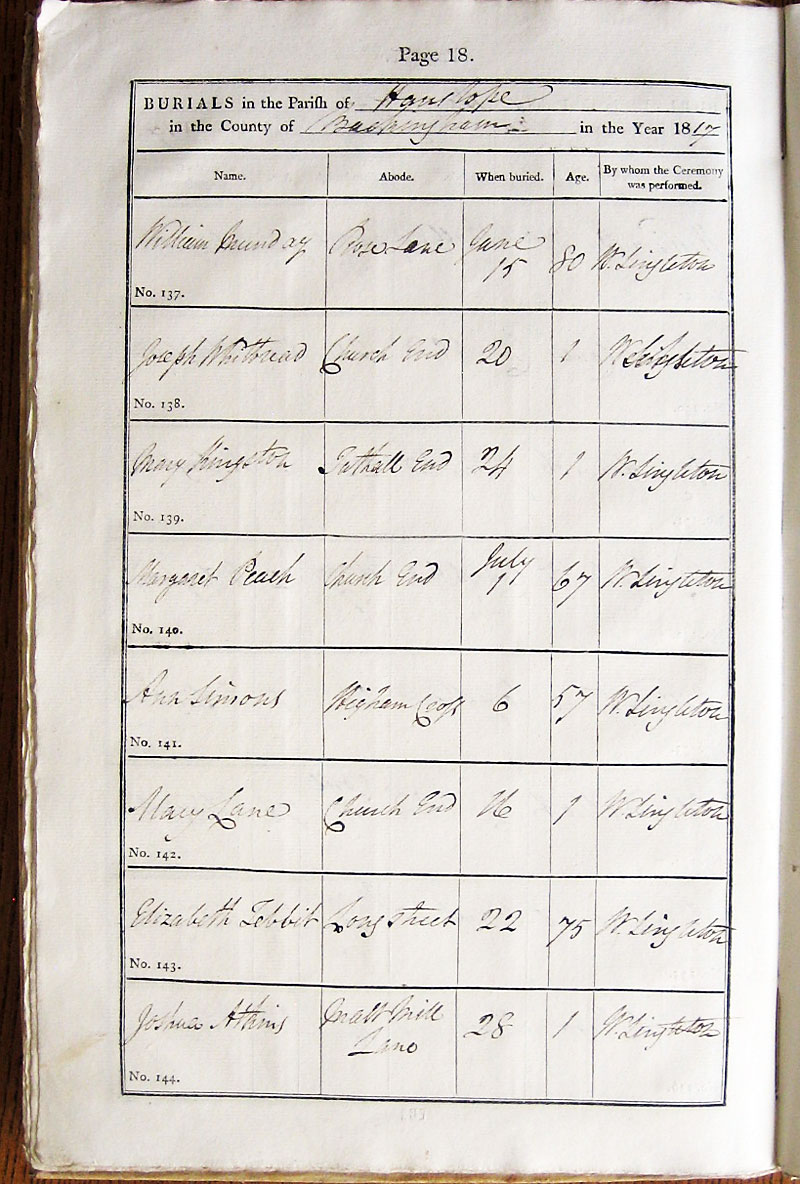 Page 18.
BURIALS in the Parish of Hanslope
in the County of Buckingham in the Year 1817
Name. Abode. When buried. Age. By whom the Ceremony
was performed.
William Munday Lane June
15 80 W. Singleton
No. 137.
Joseph Whitbread Church End 20 1 W. Singleton
No. 138.
Mary Kingston Tathall End 24 1 W. Singleton
No. 139.
Margaret Peach Church End July
1 67 W. Singleton
No. 140.
Ann Simons Higham Cross 6 57 W. Singleton
No. 141.
Mary Lane Church End 16 1 W. Singleton
No. 142.
Elizabeth Tebbit Long Street 22 75 W. Singleton
No. 143.
Joshua Atkins Malt Mill
Lane 28 1 W. Singleton
No. 144.